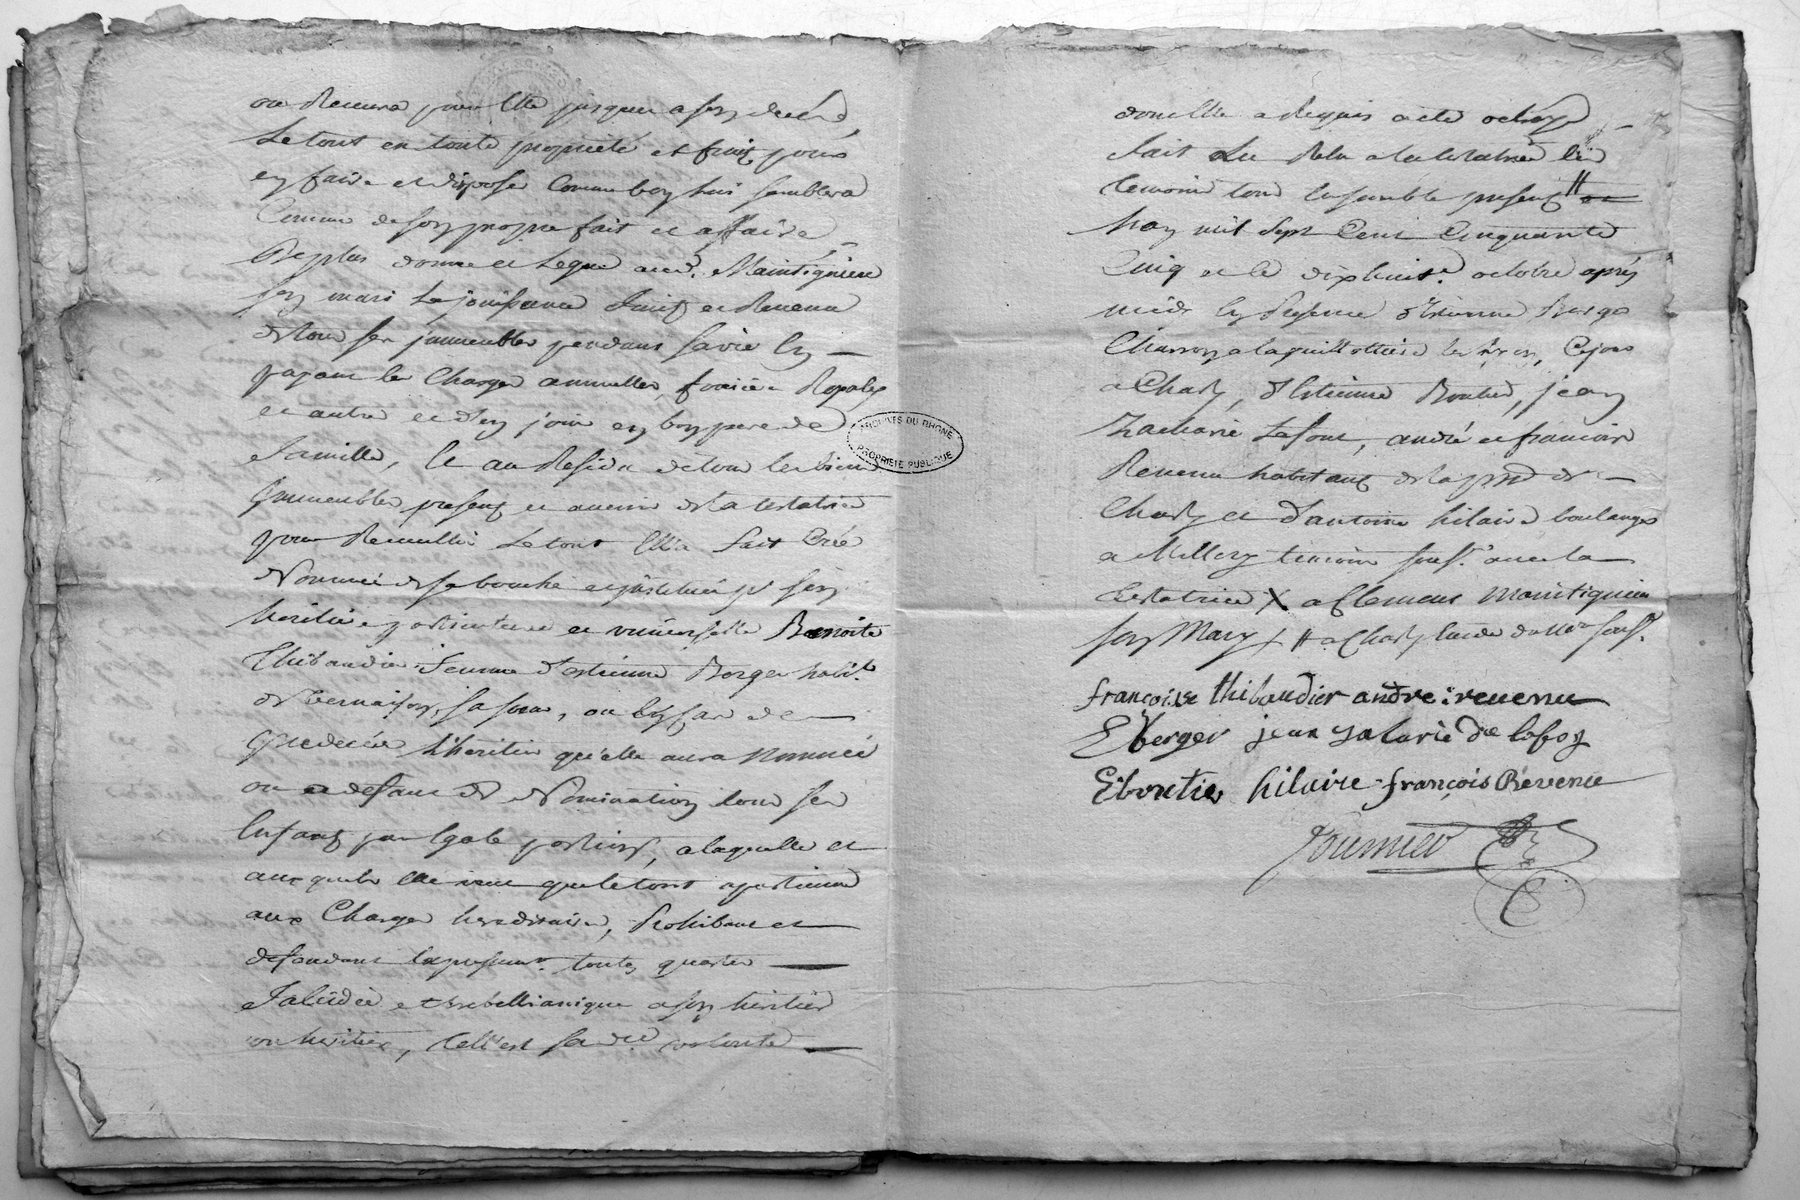 ou Recevra pour Elle jusques a son deces,
Le tout en toute propriété et fruit pour
en faire et disposer Comme bon lui semblera
Comme de son propre fait et affaire
De plus donne et Legue aud. Maintignieu
son mari La jouissance fruits et Revenu
de tous ses jmmeubles pendant sa vie En
payant les Charges annuelles, fonciere Royales
et autre et d'en jouir en bon pere de
famille, Et au Residu de tous les biens
jmmeubles presents et avenir de la testatrice
pour Recueillir Le tout Elle a fait Créé
Nommé de sa bouche et jnstitué pr son
heritiere particuliere et universelle Benoite
Thibaudier femme d'estienne Berger habit.
de Vernaison, sa soeur, ou En cas de
predecés L'heritier qu'elle aura Nommé
ou a defaut de Nomination tous ses
Enfants par Egale portions, a laquelle et
aux quels elle veut que le tout apartienne
aux Charges hereditaires, Prohibant et
defendant Expressement toutes quartes
falcidie et trebellianique a son heritier
ou heritiere, telle est sa de volonté
dont Elle a Requis acte octroyé
fait Lu Relu a la testatrice les
temoins tous Ensemble presents //
Mary mil Sept Cent Cinquante
Cinq et le dixhuit octobre après
midi En presence d'Etienne Berger
Charron a la guillottiere les Lyon, Ce jour
a Charly, d'Estienne Boutier, jean
Zacharie Lafont, andré et francois
Revenu habitants de la psse de
Charly et d'antoine hilaire boulanger
a Millery temoins sous. avec la
testatrice X a Clement Maintignieu
son Mary X // a Charly sous.
françoise thibaudier andre : revenu
E berger jean zalarie de lafoy
E boutier hilaire françois Revenu
fournier
ARCHIVES DU RHONE
PROPRIETE PUBLIQUE